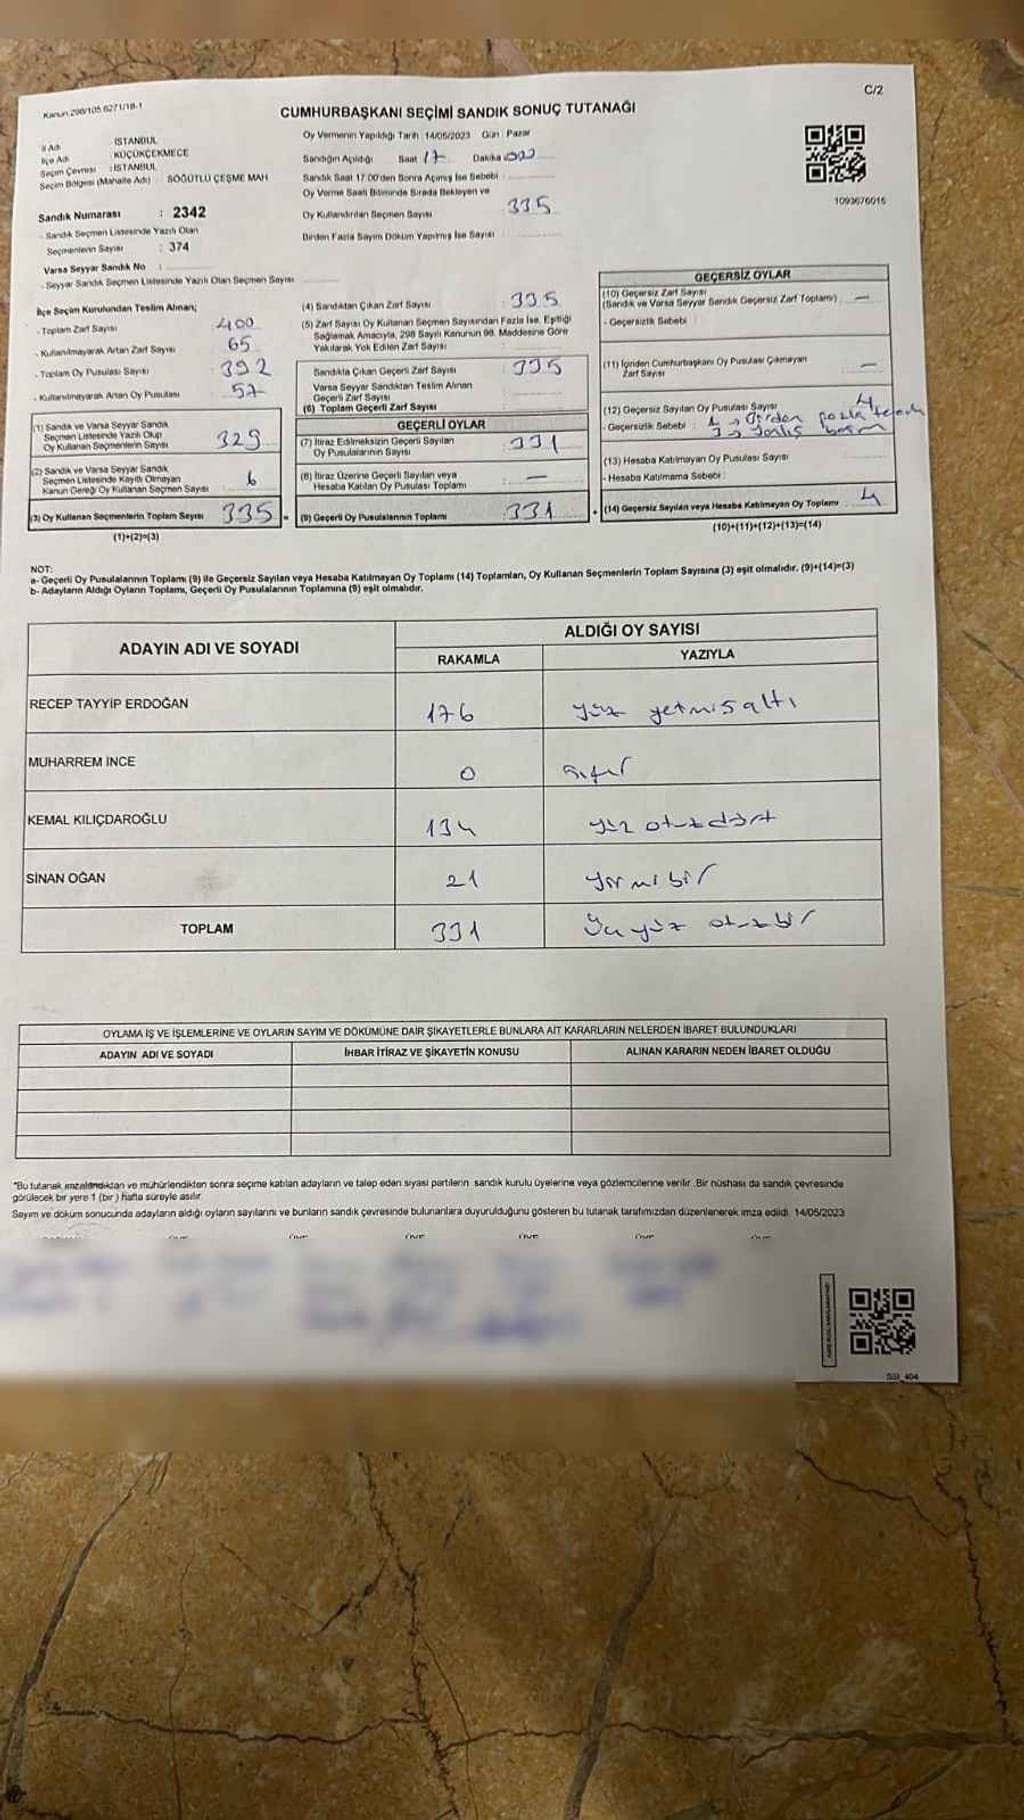 Kanun 298/105 6271/18-1
C/2
CUMHURBAŞKANI SEÇİMİ SANDIK SONUÇ TUTANAĞI
İl Adı : İSTANBUL
İlçe Adı : KÜÇÜKÇEKMECE
Seçim Çevresi : İSTANBUL
Seçim Bölgesi (Mahalle Adı) : SÖĞÜTLÜ ÇEŞME MAH
Sandık Numarası : 2342
- Sandık Seçmen Listesinde Yazılı Olan
Seçmenlerin Sayısı : 374
Varsa Seyyar Sandık No :
- Seyyar Sandık Seçmen Listesinde Yazılı Olan Seçmen Sayısı
Oy Vermenin Yapıldığı Tarih : 14/05/2023 Gün : Pazar
Sandığın Açıldığı Saat 17 Dakika 00
Sandık Saat 17:00'den Sonra Açılmış İse Sebebi :
Oy Verme Saati Bitiminde Sırada Bekleyen ve
Oy Kullandırılan Seçmen Sayısı 335
Birden Fazla Sayım Döküm Yapılmış İse Sayısı
1093676016
İlçe Seçim Kurulundan Teslim Alınan;
- Toplam Zarf Sayısı 400
- Kullanılmayarak Artan Zarf Sayısı 65
- Toplam Oy Pusulası Sayısı 392
- Kullanılmayarak Artan Oy Pusulası 57
(1) Sandık ve Varsa Seyyar Sandık
Seçmen Listesinde Yazılı Olup
Oy Kullanan Seçmenlerin Sayısı 329
(2) Sandık ve Varsa Seyyar Sandık
Seçmen Listesinde Kayıtlı Olmayan
Kanun Gereği Oy Kullanan Seçmen Sayısı 6
(3) Oy Kullanan Seçmenlerin Toplam Sayısı 335
(1)+(2)=(3)
(4) Sandıktan Çıkan Zarf Sayısı 335
(5) Zarf Sayısı Oy Kullanan Seçmen Sayısından Fazla İse, Eşitliği
Sağlamak Amacıyla, 298 Sayılı Kanunun 98. Maddesine Göre
Yakılarak Yok Edilen Zarf Sayısı
Sandıkta Çıkan Geçerli Zarf Sayısı 335
Varsa Seyyar Sandıktan Teslim Alınan
Geçerli Zarf Sayısı
(6) Toplam Geçerli Zarf Sayısı
GEÇERLİ OYLAR
(7) İtiraz Edilmeksizin Geçerli Sayılan
Oy Pusulalarının Sayısı 331
(8) İtiraz Üzerine Geçerli Sayılan veya
Hesaba Katılan Oy Pusulası Toplamı —
= (9) Geçerli Oy Pusulalarının Toplamı 331
GEÇERSİZ OYLAR
(10) Geçersiz Zarf Sayısı
(Sandık ve Varsa Seyyar Sandık Geçersiz Zarf Toplamı) —
- Geçersizlik Sebebi :
(11) İçinden Cumhurbaşkanı Oy Pusulası Çıkmayan
Zarf Sayısı —
(12) Geçersiz Sayılan Oy Pusulası Sayısı 4
- Geçersizlik Sebebi : 1 → Birden fazla
3 → yanlış basım
(13) Hesaba Katılmayan Oy Pusulası Sayısı
- Hesaba Katılmama Sebebi :
+ (14) Geçersiz Sayılan veya Hesaba Katılmayan Oy Toplamı 4
(10)+(11)+(12)+(13)=(14)
NOT:
a- Geçerli Oy Pusulalarının Toplamı (9) ile Geçersiz Sayılan veya Hesaba Katılmayan Oy Toplamı (14) Toplamları, Oy Kullanan Seçmenlerin Toplam Sayısına (3) eşit olmalıdır. (9)+(14)=(3)
b- Adayların Aldığı Oyların Toplamı, Geçerli Oy Pusulalarının Toplamına (9) eşit olmalıdır.
ADAYIN ADI VE SOYADI
ALDIĞI OY SAYISI
RAKAMLA YAZIYLA
RECEP TAYYİP ERDOĞAN 176 yüz yetmiş altı
MUHARREM İNCE 0 sıfır
KEMAL KILIÇDAROĞLU 134 yüz otuzdört
SİNAN OĞAN 21 yirmi bir
TOPLAM 331 Üç yüz otuzbir
OYLAMA İŞ VE İŞLEMLERİNE VE OYLARIN SAYIM VE DÖKÜMÜNE DAİR ŞİKAYETLERLE BUNLARA AİT KARARLARIN NELERDEN İBARET BULUNDUKLARI
ADAYIN ADI VE SOYADI İHBAR İTİRAZ VE ŞİKAYETİN KONUSU ALINAN KARARIN NEDEN İBARET OLDUĞU
*Bu tutanak imzalandıktan ve mühürlendikten sonra seçime katılan adayların ve talep eden siyasi partilerin sandık kurulu üyelerine veya gözlemcilerine verilir. Bir nüshası da sandık çevresinde
görülecek bir yere 1 (bir) hafta süreyle asılır.
Sayım ve döküm sonucunda adayların aldığı oyların sayılarını ve bunların sandık çevresinde bulunanlara duyurulduğunu gösteren bu tutanak tarafımızdan düzenlenerek imza edildi. 14/05/2023